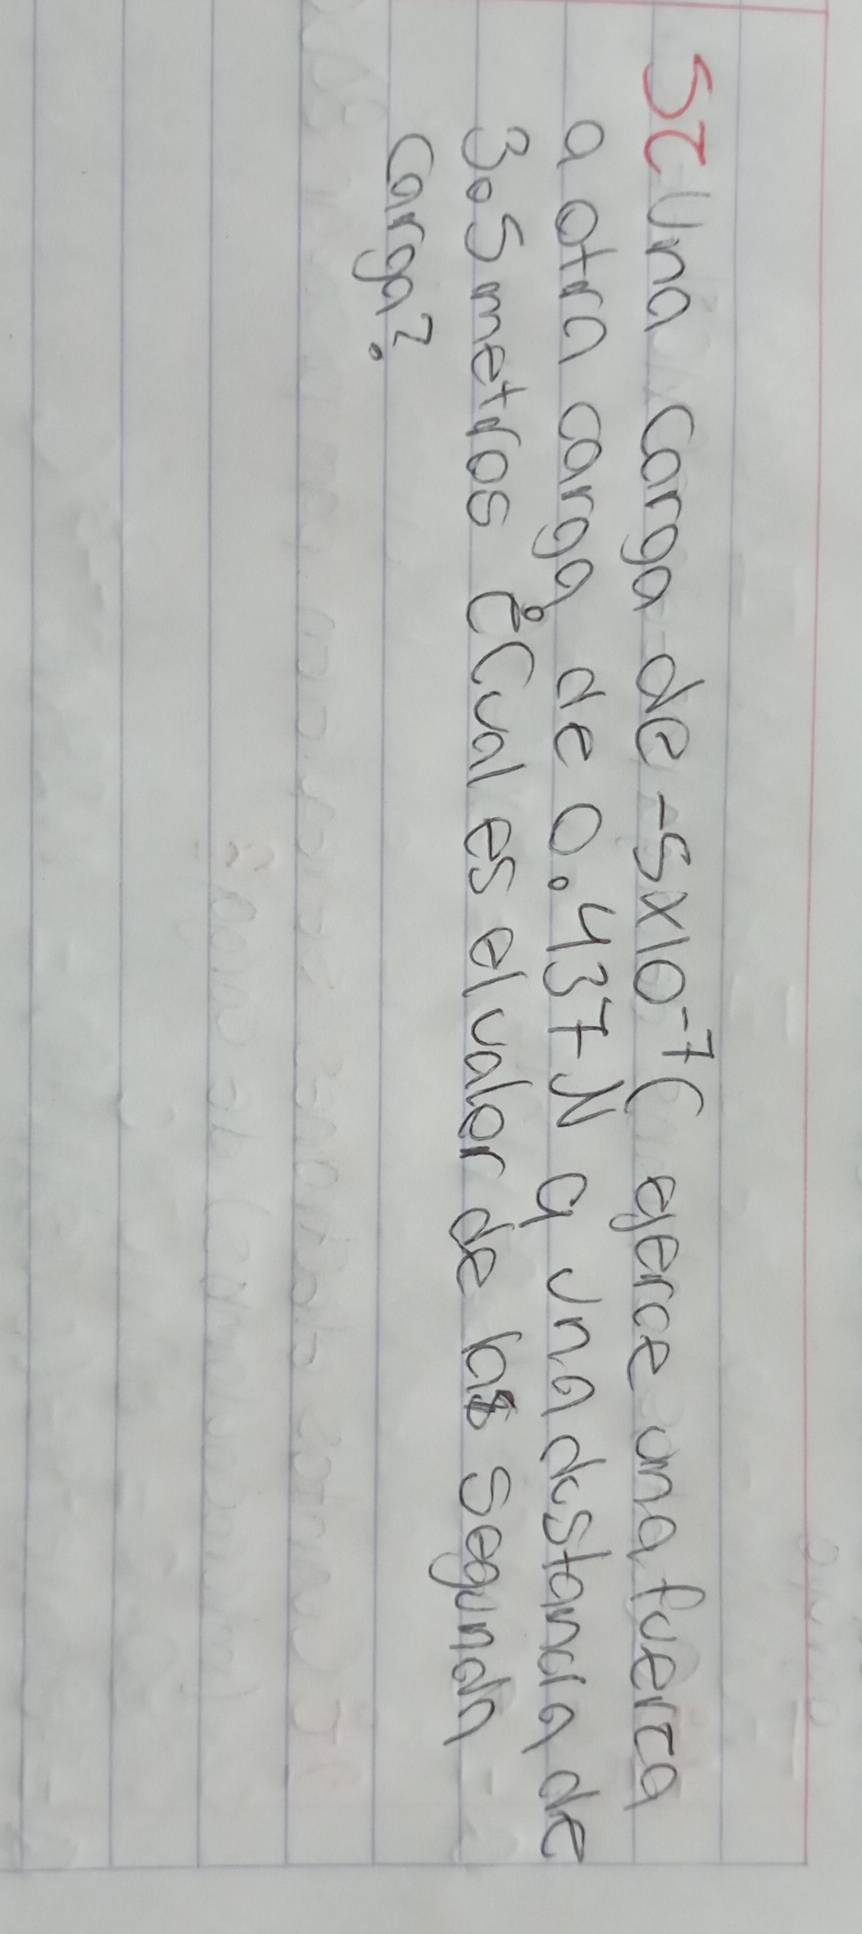 5Z Una carga de -5x10⁻⁷C ejerce una fuerza
a otra carga de 0.437 N a una distancia de
3.5 metros ¿Cual es el valor de la segunda
carga?